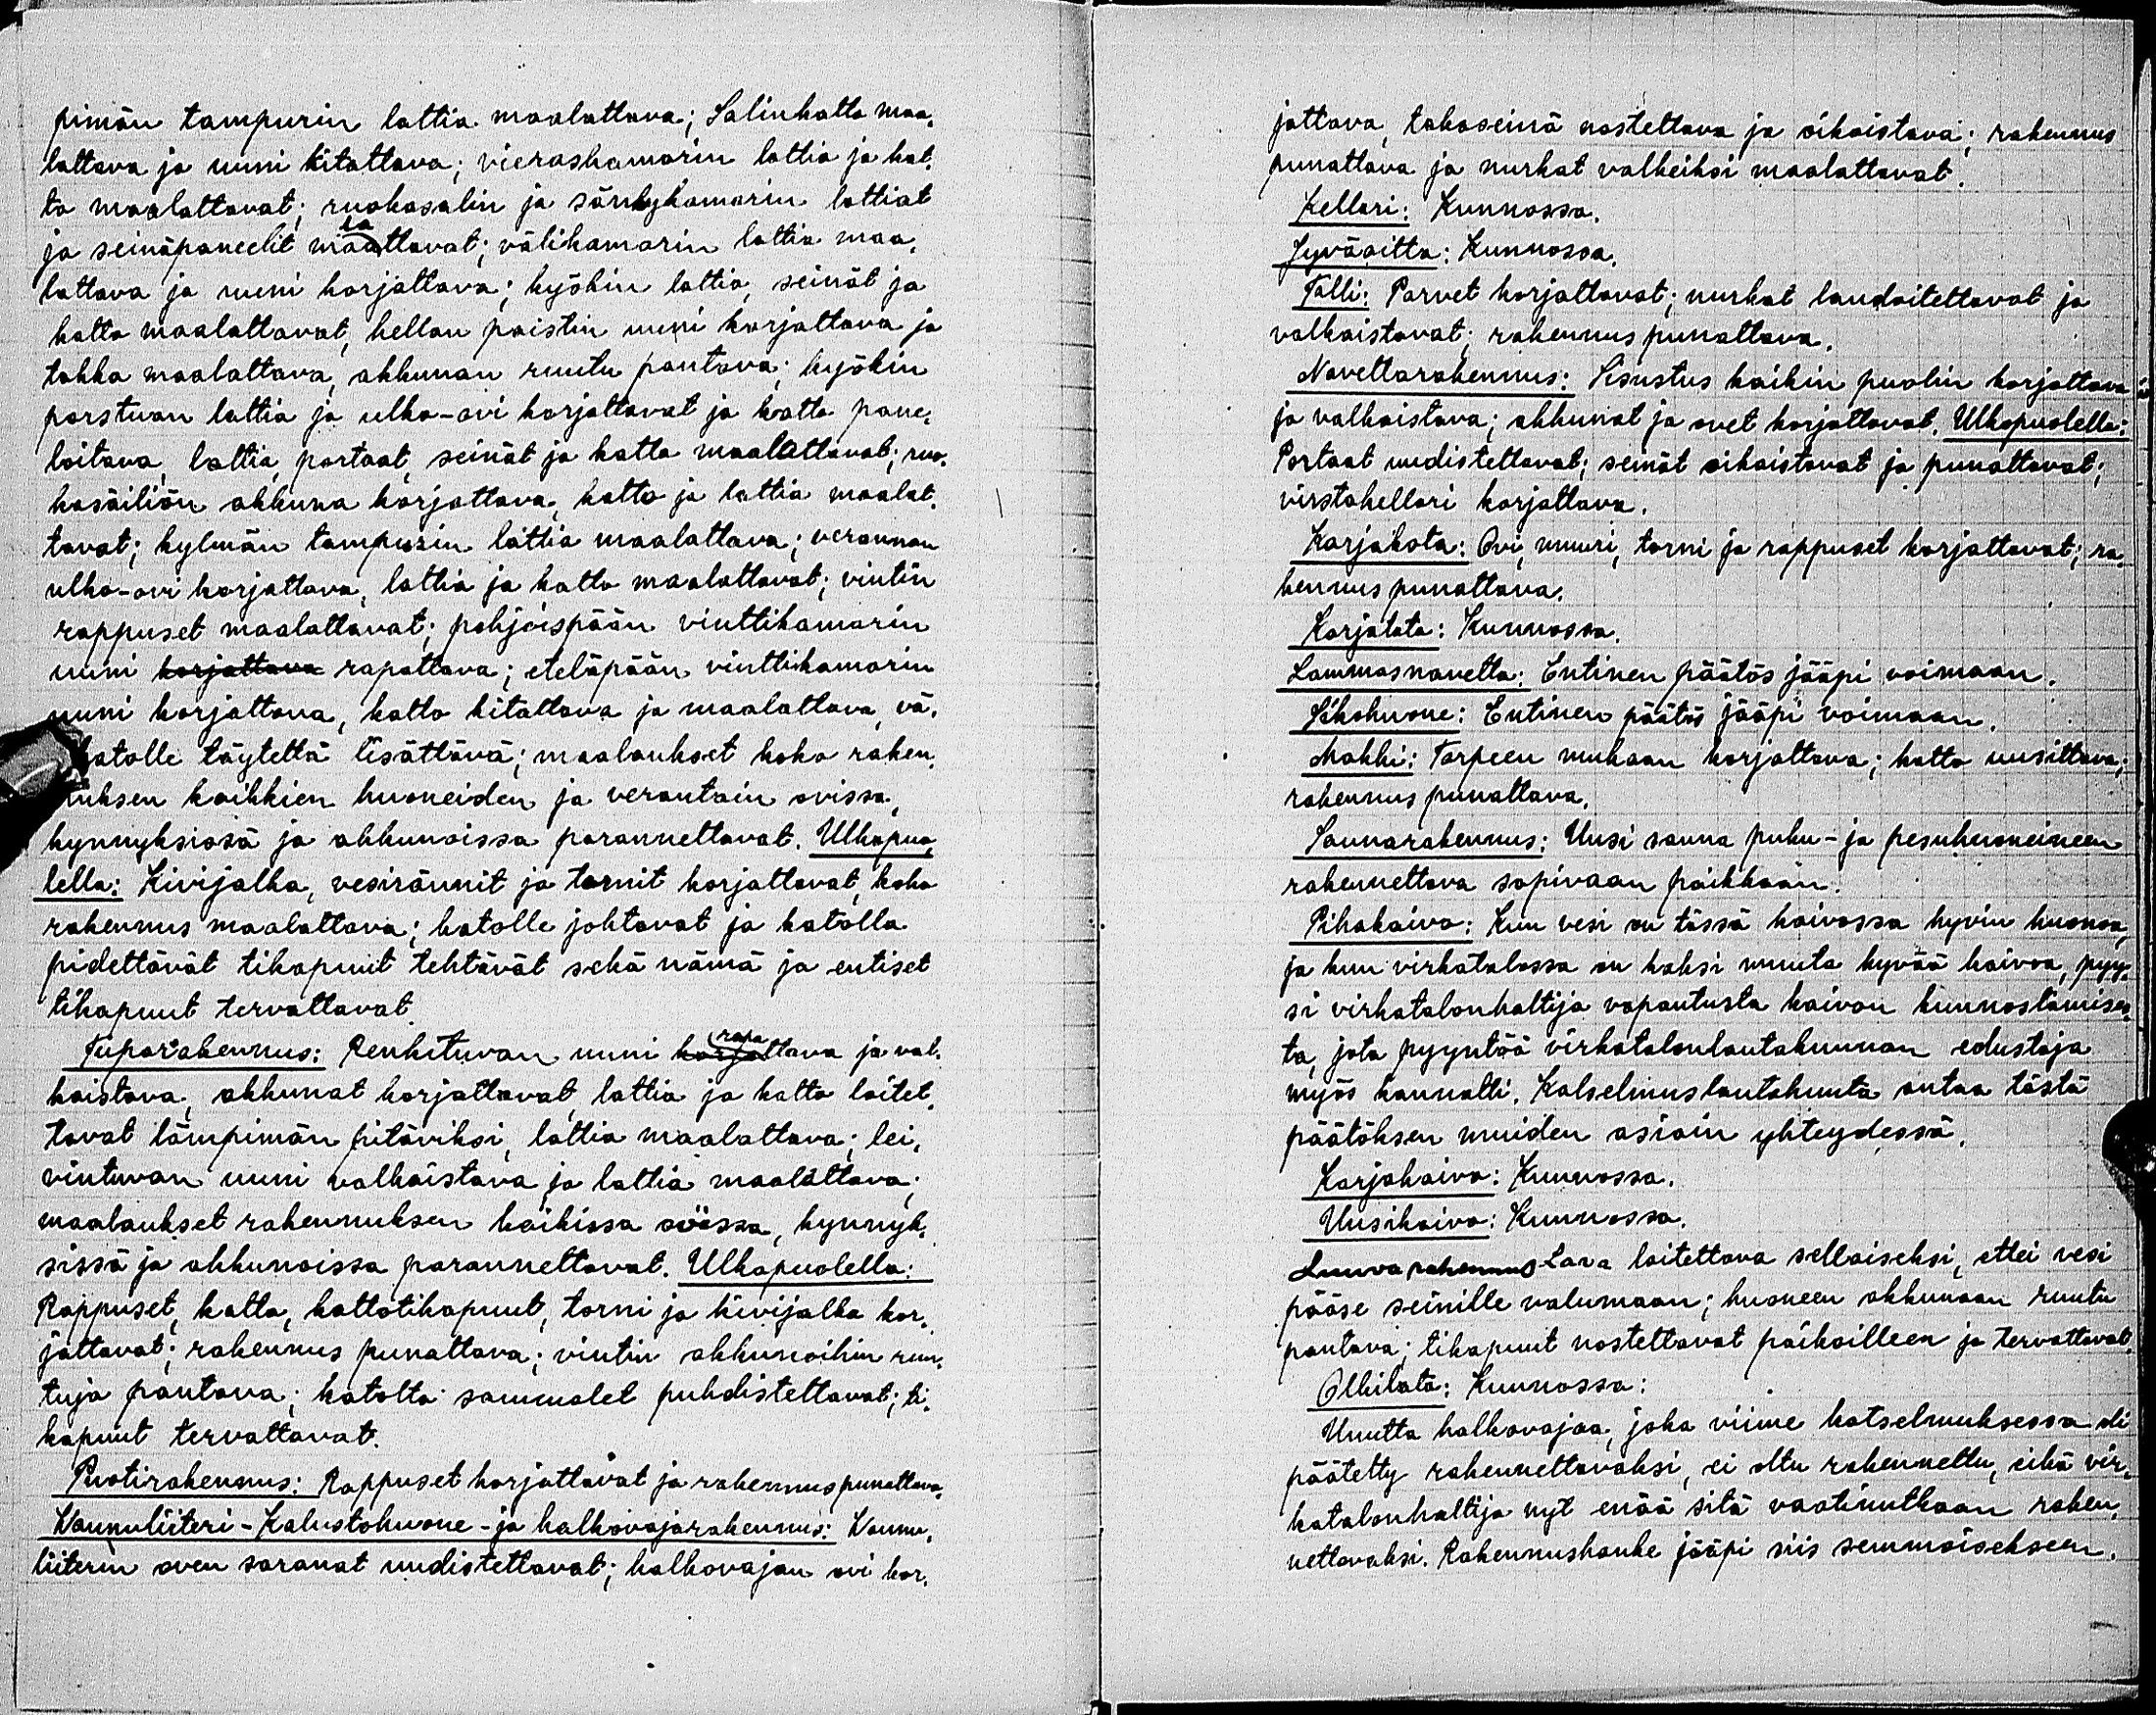 pimän tampurin lattia maalattava; Salinkatto maa,
lattava ja uuni kitattava; vierashamarin lattia ja kat,
to maalattavat; ruokasalin ja sänkykamarin lattiat
ja seinäpaneelit maalattavat; välikamarin lattia maa,
lattava ja uuni korjattava; kyökin lattia, seinät ja
katto maalattavat, hellan paistin uuni korjattava ja
takka maalattava, akkunan ruutu pantava; kyökin
porstuan lattia ja ulko-ovi korjattavat ja katto pane,
loitava, lattia, portaat, seinät ja katto maalattavat; ruo,
kasäiliön akkuna korjattava, katto ja lattia maalat,
tavat; kylmän tampurin lattia maalattava; verannan
ulko-ovi korjattava, lattia ja katto maalattavat; vintin
rappuset maalattavat; pohjoispään vinttikamarin
uuni korjattava rapattava; eteläpään vinttikamarin
uuni korjattava, katto kitattava ja maalattava, vä,
katolle täytettä lisättävä; maalaukset koko raken,
nuksen kaikkien huoneiden ja verantain ovissa,
kynnyksissä ja akkunoissa parannettavat. Ulkopuo,
lella: Kivijalka, vesirännit ja tornit korjattavat, koko
rakennus maalattava; katolle johtavat ja katolla
pidettävät tikapuut tehtävät sekä nämä ja entiset
tikapuut tervattavat.
Tuparakennus: Renkituvan uuni korjattava rapattava ja val,
kaistava, akkunat korjattavat, lattia ja katto laitet,
tavat lämpimän pitäviksi, lattia maalattava; lei,
vintuvan uuni valkaistava ja lattia maalattava;
maalaukset rakennuksen kaikissa ovissa, kynnyk,
sissä ja akkunoissa parannettavat. Ulkopuolella:
Rappuset, katto, kattotikapuut, torni ja kivijalka kor,
jattavat; rakennus punattava; vintin akkunoihin ruu,
tuja pantava; katolta sammalet puhdistettavat; ti,
kapuut tervattavat.
Puotirakennus: Rappuset korjattavat ja rakennus punattava,
Vaunuliiteri-Kalustohuone-ja halkovajarakennus: Vaunu,
liiterin oven saranat uudistettavat; halkovajan ovi kor,
jattava, takaseinä nostettava ja oikaistava; rakennus
punattava ja nurkat valkeiksi maalattavat.
Kellari: Kunnossa.
Jyväaitta: Kunnossa.
Talli: Parvet korjattavat; nurkat laudoitettavat ja
valkaistavat; rakennus punattava.
Navettarakennus: Sisustus kaikin puolin korjattava
ja valkaistava; akkunat ja ovet korjattavat. Ulkopuolella:
Portaat uudistettavat; seinät oikaistavat ja punattavat;
virstakellari korjattava.
Karjakota: Ovi, muuri, torni ja rappuset korjattavat; ra,
kennus punattava.
Karjalato: Kunnossa.
Lammasnavetta: Entinen päätös jääpi voimaan.
Sikohuone: Entinen päätös jääpi voimaan.
Makki: Tarpeen mukaan korjattava; katto uusittava;
rakennus punattava.
Saunarakennus: Uusi sauna puku- ja pesuhuoneineen
rakennettava sopivaan paikkaan.
Pihakaivo: Kun vesi on tässä kaivossa hyvin huonoa,
ja kun virkatalossa on kaksi muuta hyvää kaivoa, pyy,
si virkatalonhaltija vapautusta kaivon kunnostamises,
ta, jota pyyntöä virkatalonlautakunnan edustaja
myös kannatti. Katselmuslautakunta antaa tästä
päätöksen muiden asiain yhteydessä.
Karjakaivo: Kunnossa.
Uusikaivo: Kunnossa.
Luuvarakennus Lava laitettava sellaiseksi, ettei vesi
pääse seinille valumaan; huoneen akkunaan ruutu
pantava; tikapuut nostettavat paikoilleen ja tervattavat.
Olkilato: Kunnossa:
Uuutta halkovajaa, joka viime katselmuksessa oli
päätetty rakennettavaksi, ei oltu rakennettu, eikä vir,
katalonhaltija nyt enää sitä vaatinutkaan raken,
nettavaksi. Rakennushanke jääpi siis semmoisekseen.